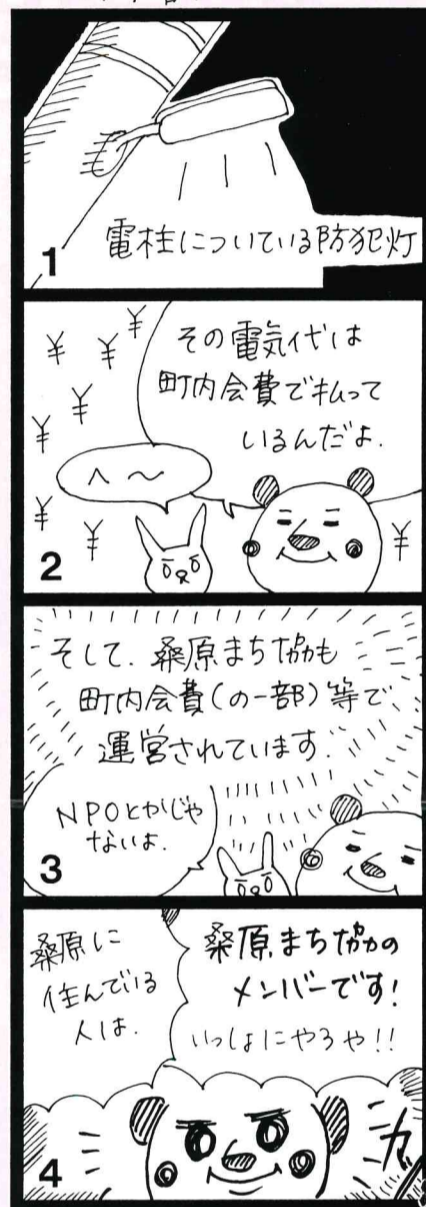 電柱についている防犯灯
1
¥ ¥ ¥ ¥ ¥ ¥ ¥ ¥
その電気代は
町内会費で払って
いるんだよ.
へ〜
2
そして.桑原まち協も
町内会費(の一部)等で
運営されています.
NPOとかじゃ
ないよ.
3
桑原に
住んでいる
人は.
桑原まち協の
メンバーです!
いっしょにやろや!!
4